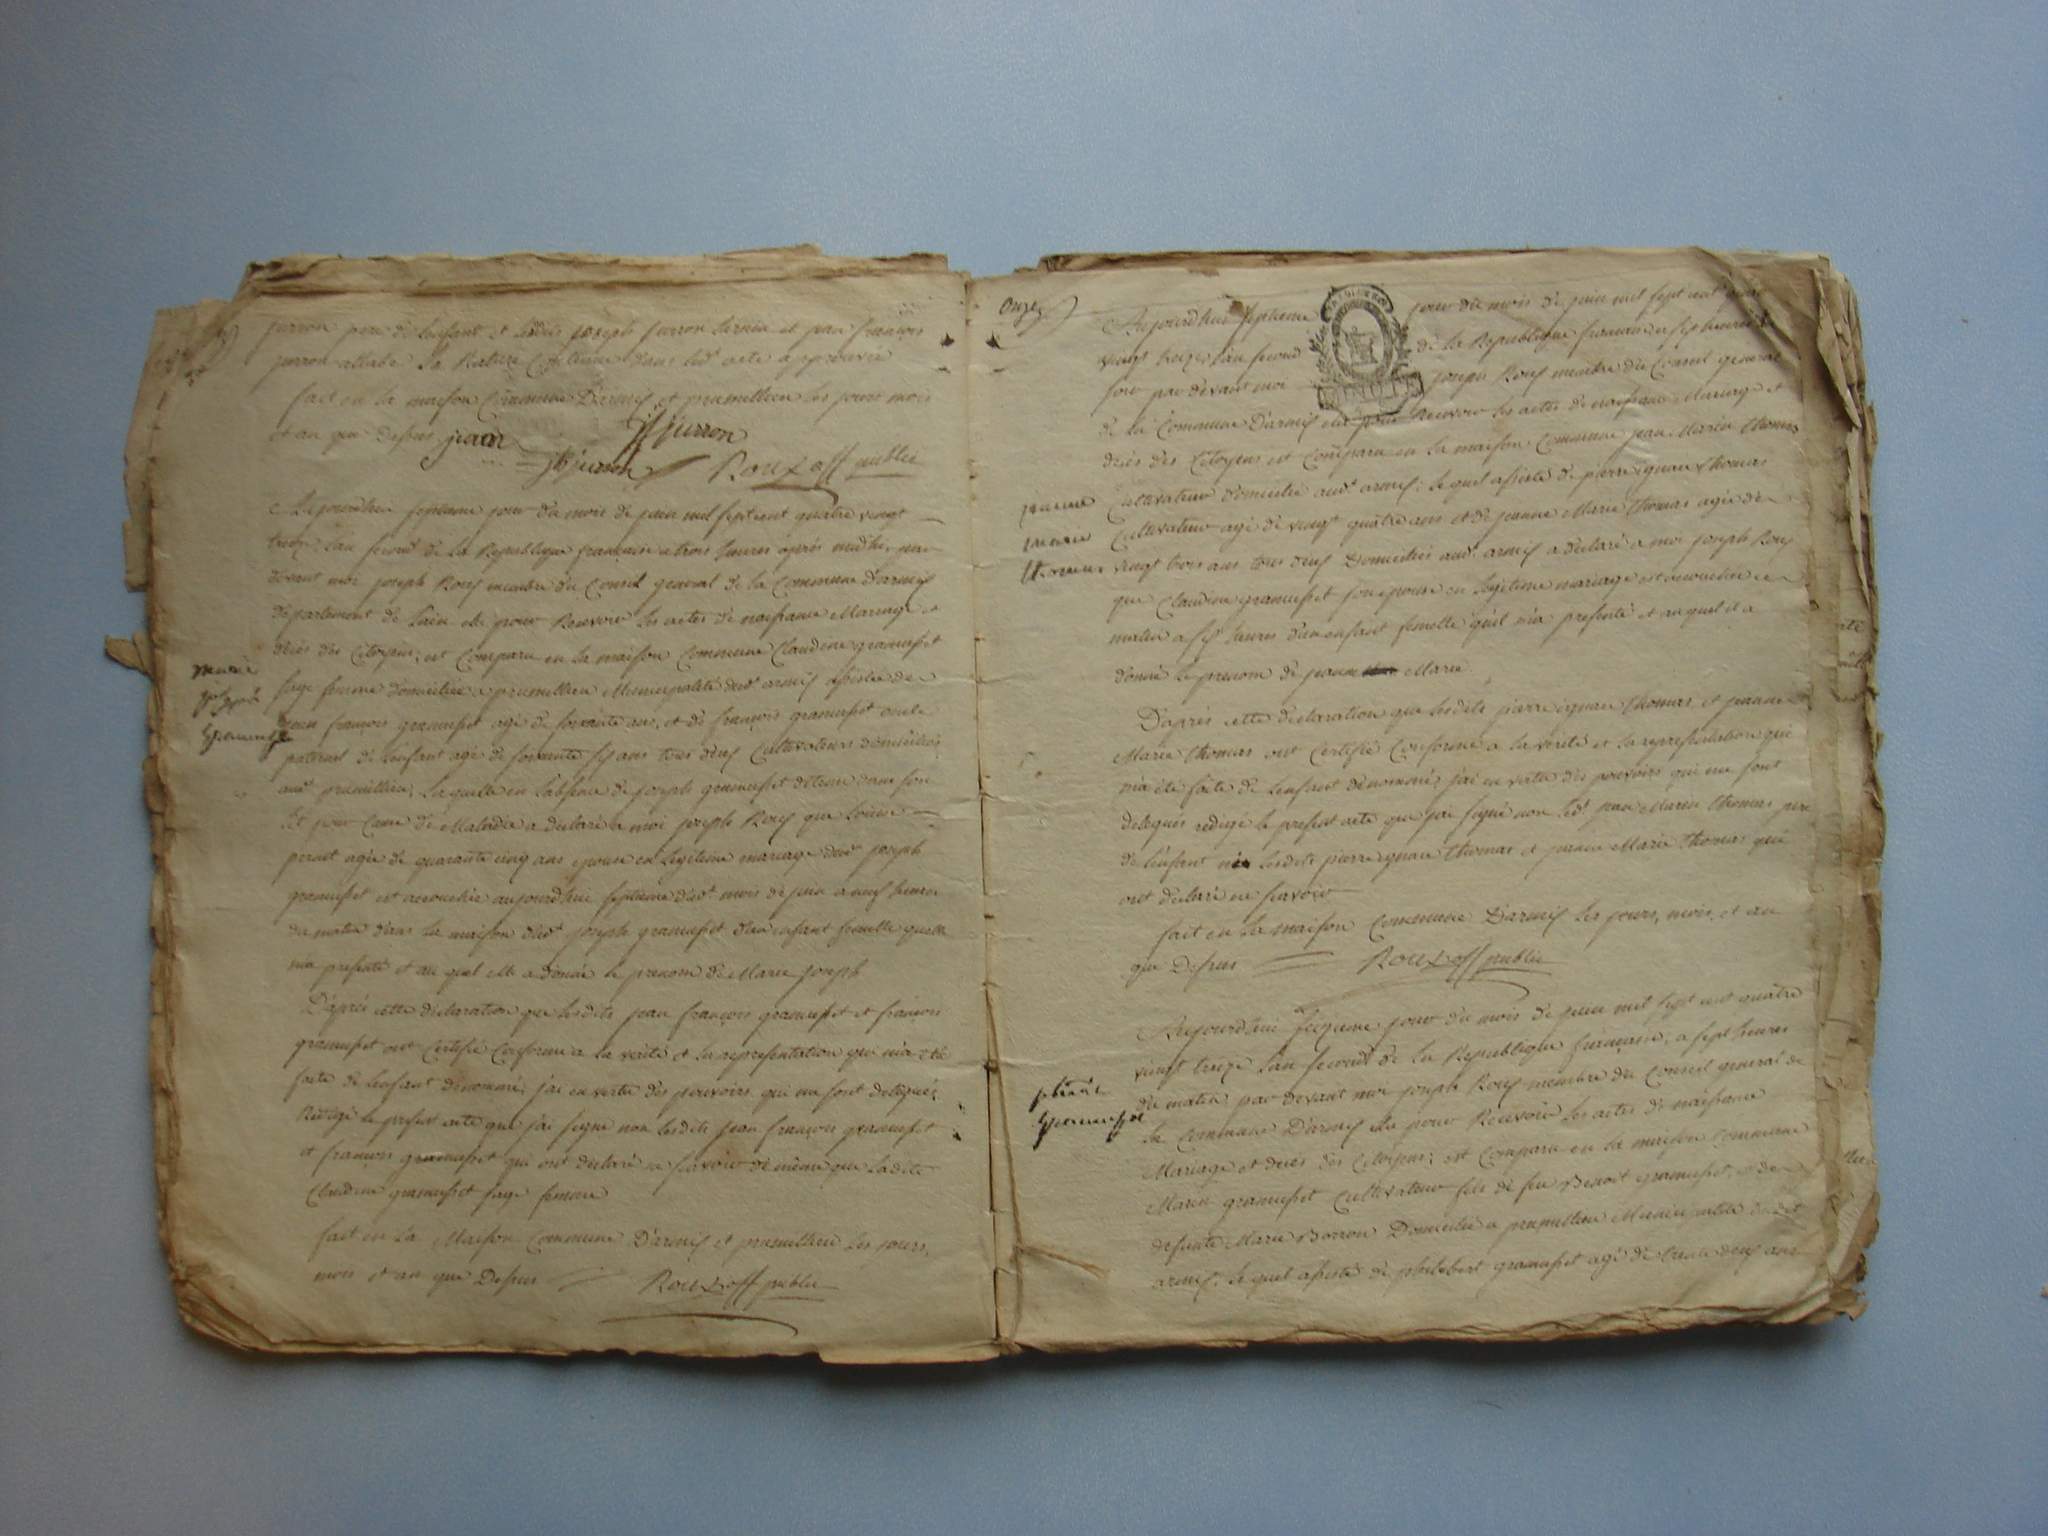 perron pere de lenfant et lesdits joseph perron et jean françois
perron la Rature Contenue dans led. acte approuvée
fait en la maison Commune D'armis et premillieu les jours mois
et an que dessus jean perron
perron Roux off public
Aujourdhui septieme jour du mois de juin mil sept cent quatre vingt
treize, l'an second de la Republique française a trois heures après midhi, par
devant moi joseph Roux membre du Conseil general de la Commune d'armis
departement de l'ain élu pour Recevoir les actes de naissance Mariage et
decés des Citoyens; est Comparu en la maison Commune Claudine gramusset
marie
sage femme domiciliée a premillieu Municipalité dud. armis assistée de
joseph
jean françois gramusset agé de soixante ans, et de françois gramusset oncle
gramusset
paternel de lenfant agé de soixante six ans tous deux Cultivateurs domiciliés
aud. premillieu, Laquelle en l'absence de joseph gramusset detenu dans son
lit pour Cause de Maladie a declaré a moi joseph Roux que Louise
perret agée de quarante cinq ans epouse en Legitime mariage dud. joseph
gramusset est accouchée aujourdhui septieme dud. mois de juin a neuf heures
du matin dans la maison dud. joseph gramusset d'un enfant femelle quelle
ma presenté et au quel elle a donné le prenom de Marie joseph
D'après cette declaration que lesdits jean françois gramusset et françois
gramusset ont Certifié Conforme a la verité et la representation qui m'a été
faite de lenfant denommé; j'ai en vertu des pouvoirs qui me sont delegués
Redigé le present acte que j'ai signé non lesdits jean françois gramusset
et françois gramusset qui ont declaré ne savoir de même que ladite
Claudine gramusset sage femme
fait en la Maison Commune D'armis et premillieu les jours,
mois et an que Dessus
Roux off public
Onze
Aujourdhui septieme jour du mois de juin mil sept cent quatre
vingt treize l'an second de la Republique francaise a six heures du
soir par devant moi joseph Roux membre du Conseil general
de la Commune D'armis élu pour Recevoir les actes de naissance Mariage et
decés des Citoyens est Comparu en la maison Commune jean Marin thomas
jeanne
Cultivateur domicilié aud. armis; lequel assisté de pierre ignace thomas
marie
Cultivateur agé de vingt quatre ans et de jeanne Marie thomas agée de
thomas
vingt trois ans tous deux Domiciliés aud. armis a déclaré a moi joseph Roux
que Claudine gramusset son epouse en Legitime mariage est accouchée ce
matin a six heures d'un enfant femelle qu'il m'a presenté et au quel il a
donné le prenom de jeanne Marie
D'après cette declaration que lesdits pierre ignace thomas et jeanne
Marie thomas ont Certifié Conforme a la verité et la representation qui
m'a été faite de lenfant dénommé; j'ai en vertu des pouvoirs qui me sont
delegués redigé le present acte que j'ai signé non led. jean Marin thomas pere
de lenfant ni lesdits pierre ignace thomas et jeanne Marie thomas qui
ont declaré ne savoir
fait en la maison Commune D'armis les jours, mois, et an
que Dessus
Roux off public
Aujourdhui jour du mois de juin mil sept cent quatre
vingt treize l'an second de la Republique française, a sept heures
du matin par devant moi joseph Roux membre du Conseil general de
la Commune D'armis élu pour Recevoir les actes de naissance
gramusset
Mariage et decés des Citoyens; est Comparu en la maison Commune
Marin gramusset Cultivateur fils de feu Benoit gramusset, et de
defunte Marie Borron Domicilié a premillieu Municipalité dudit
armis, lequel assisté de philibert gramusset agé de trente deux ans